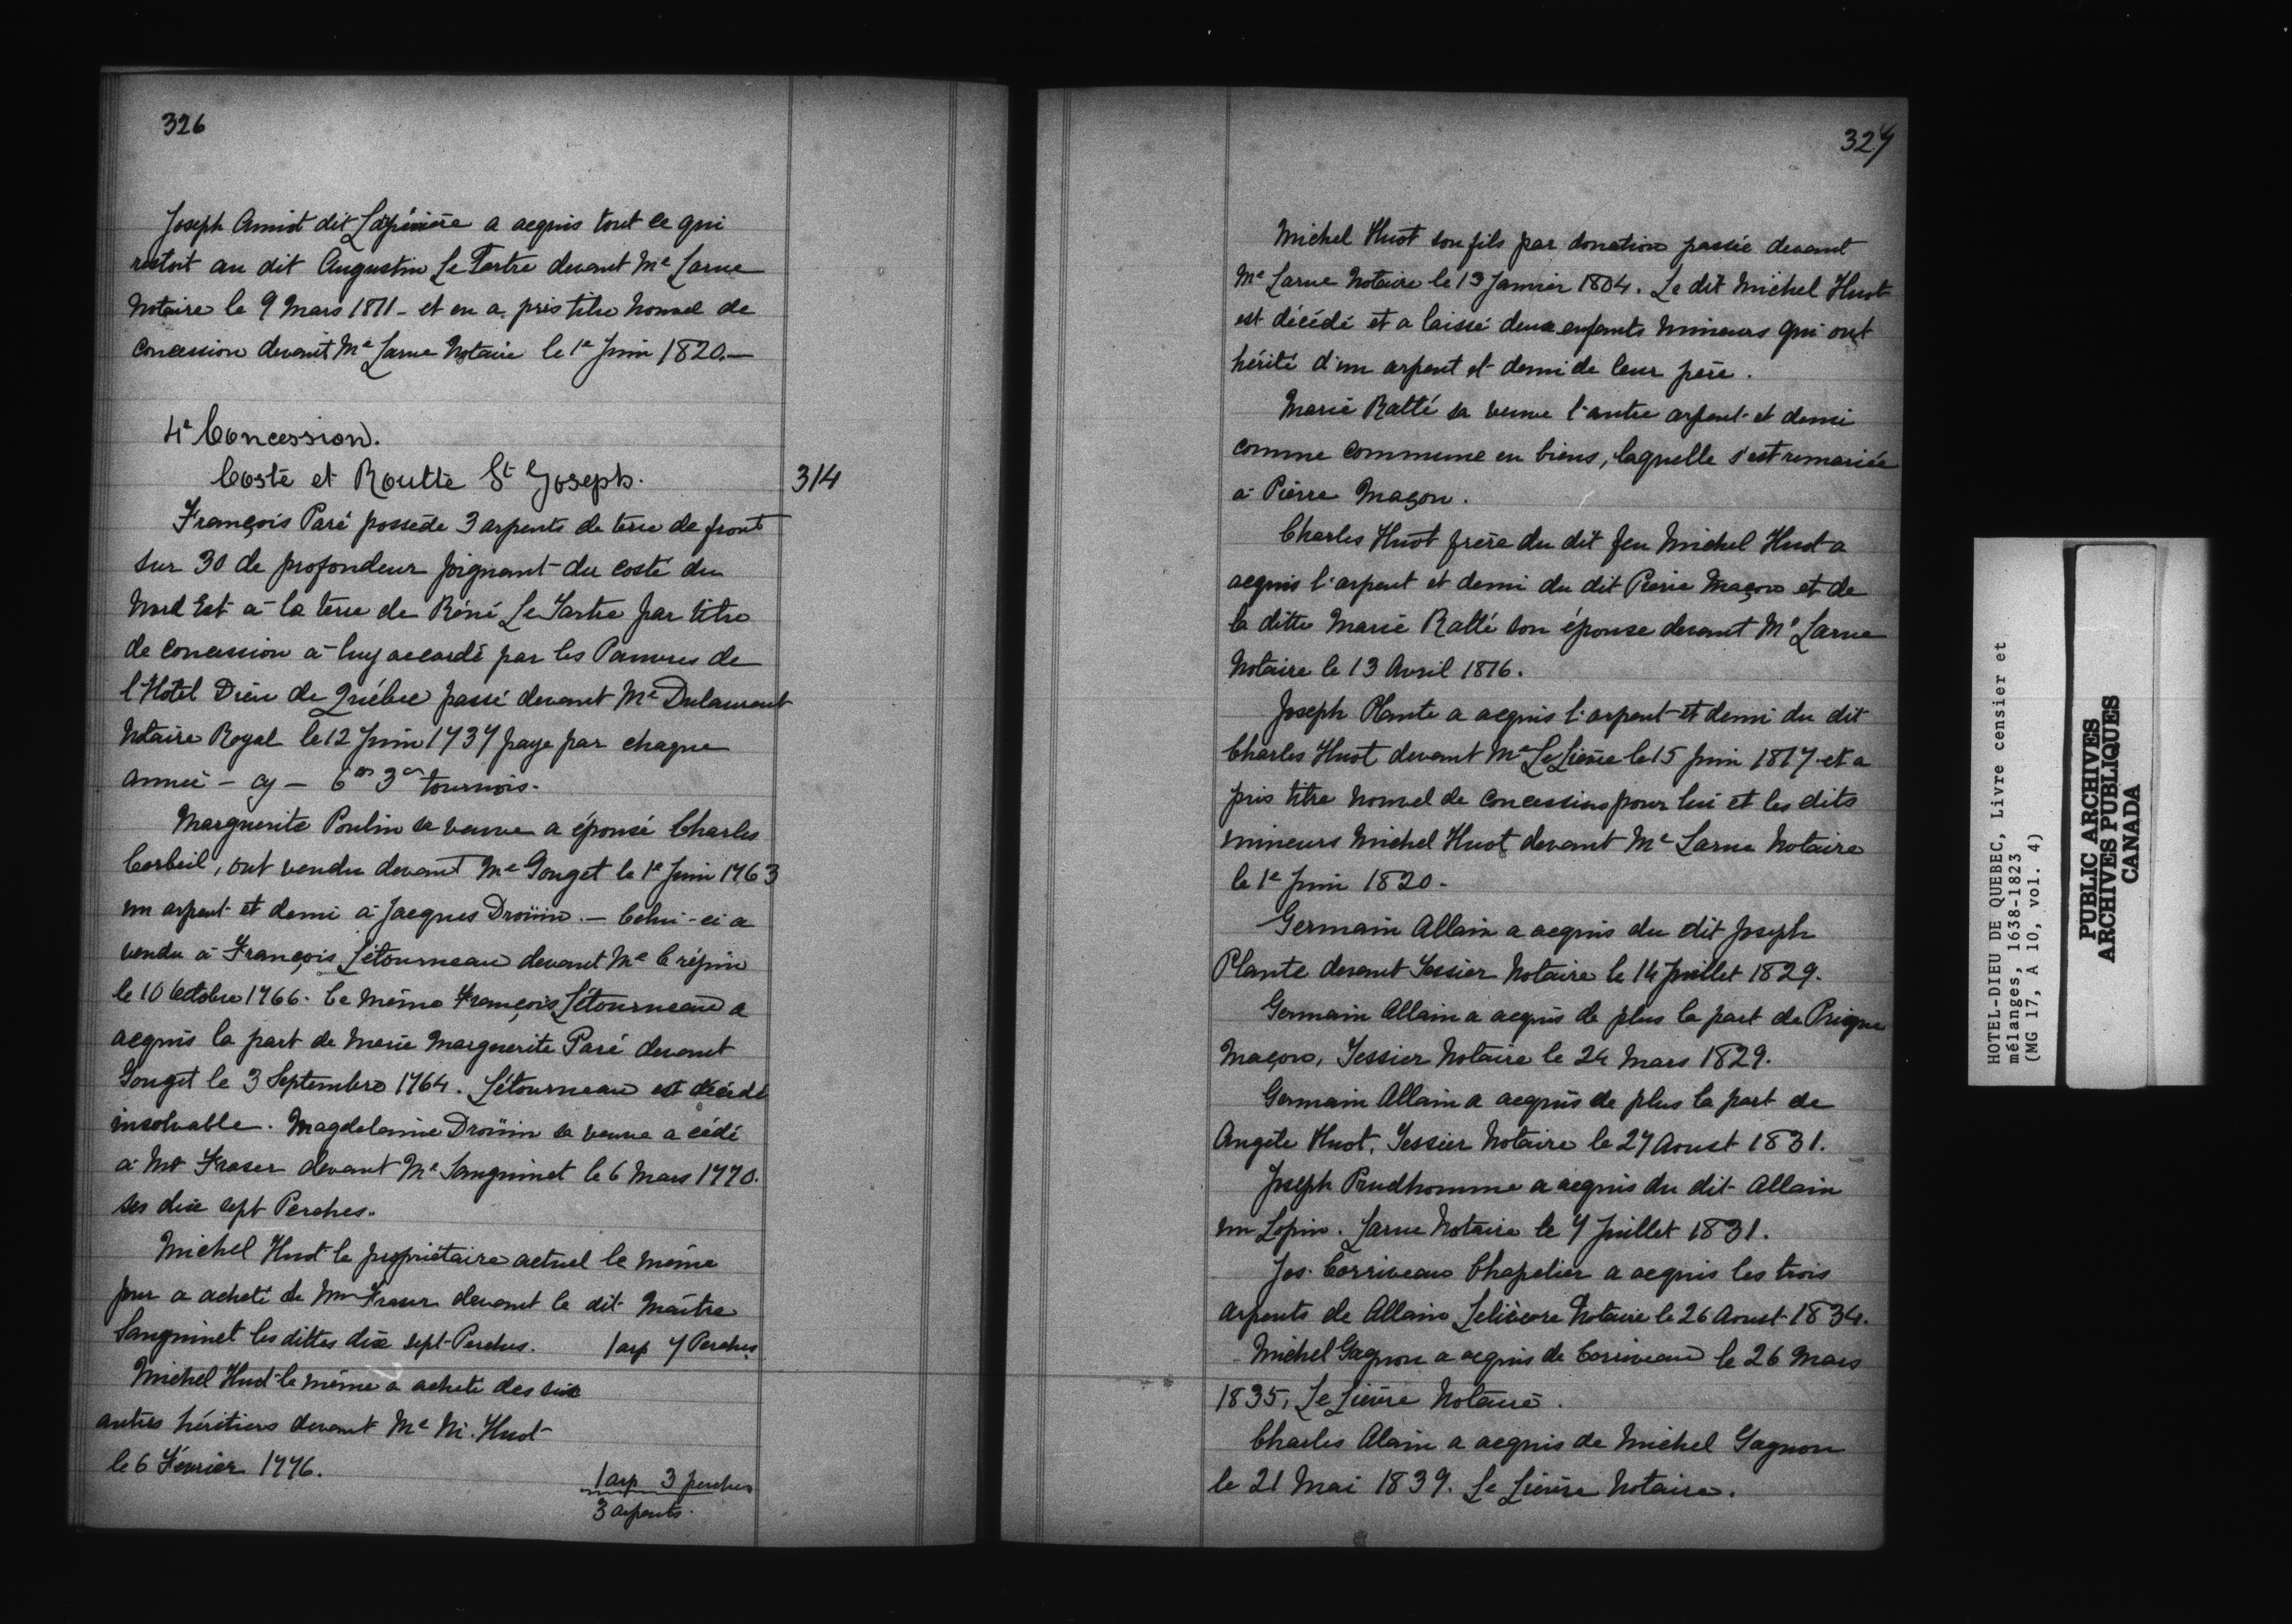 326
Joseph Amiot dit Lépinière a acquis tout ce qui
restoit au dit Augustin Le Tartre devant Me Larue
Notaire le 9 Mars 1811 - et en a pris titre Nouvel de
Concession devant Me Larue Notaire le 1e Juin 1820.—
4e Concession.
Costé et Routte St Joseph.
314
François Paré possède 3 arpents de terre de front
sur 30 de profondeur joignant du costé du
Nord Est à la terre de Réné Le Tartre par titre
de Concession à luy accordé par les Pauvres de
l'Hôtel Dieu de Québec passé devant Me Dulaurent
Notaire Royal le 12 Juin 1737 paye par chaque
année - cy - 6 3 tournois.
Marguerite Poulin sa veuve a épousé Charles
Corbeil, ont vendu devant Me Gouget le 1e Juin 1763
un arpent et demi à Jacques Droüin. — Celui-ci a
vendu à François Létourneau devant Me Crépin
le 10 Octobre 1766. Le même François Létourneau a
acquis la part de Marie Marguerite Paré devant
Gouget le 3 Septembre 1764. Létourneau est décédé
insolvable. Magdelaine Droüin sa veuve a cédé
à Mr Fraser devant Me Sanguinet le 6 Mars 1770.
ses dix sept Perches.
Michel Huot le propriétaire actuel le même
jour a acheté de Mr Fraser devant le dit Maître
Sanguinet les dittes dix sept Perches. 1 arp 7 Perches
Michel Huot le même a acheté des six
autres héritiers devant Me N. Huot
le 6 Février 1776.
1 arp 3 perches
3 arpents.
327
Michel Huot son fils par donation passée devant
Me Larue Notaire le 13 Janvier 1804. Le dit Michel Huot
est décédé et a laissé deux enfants Mineurs qui ont
hérité d'un arpent et demi de leur père.
Marie Ratté sa veuve l'autre arpent et demi
comme commune en biens, laquelle s'est remariée
à Pierre Maçon.
Charles Huot frère du dit feu Michel Huot a
acquis l'arpent et demi du dit Pierre Maçon et de
la ditte Marie Ratté son épouse devant Me Larue
Notaire le 13 Avril 1816.
Joseph Plante a acquis l'arpent et demi du dit
Charles Huot devant Me Le Lièvre le 15 Juin 1817 et a
pris titre Nouvel de Concession pour lui et les dits
mineurs Michel Huot devant Me Larue Notaire
le 1e Juin 1820.
Germain Allain a acquis du dit Joseph
Plante devant Tessier Notaire le 14 Juillet 1829.
Germain Allain a acquis de plus la part de
Maçon, Tessier Notaire le 24 Mars 1829.
Germain Allain a acquis de plus la part de
Angele Huot, Tessier Notaire le 27 Aoust 1831.
Joseph Prudhomme a acquis du dit Allain
un Lopin. Larue Notaire le 7 Juillet 1831.
Jos. Corriveau Chapelier a acquis les trois
Arpents de Allain, Lelièvre Notaire le 26 Aoust 1834.
Michel Gagnon a acquis de Corriveau le 26 Mars
1835, Le Lièvre Notaire.
Charles Alain a acquis de Michel Gagnon
le 21 Mai 1839. Le Lièvre Notaire.
HOTEL-DIEU DE QUEBEC, Livre censier et
mélanges, 1638-1823
(MG 17, A 10, vol. 4)
PUBLIC ARCHIVES
ARCHIVES PUBLIQUES
CANADA